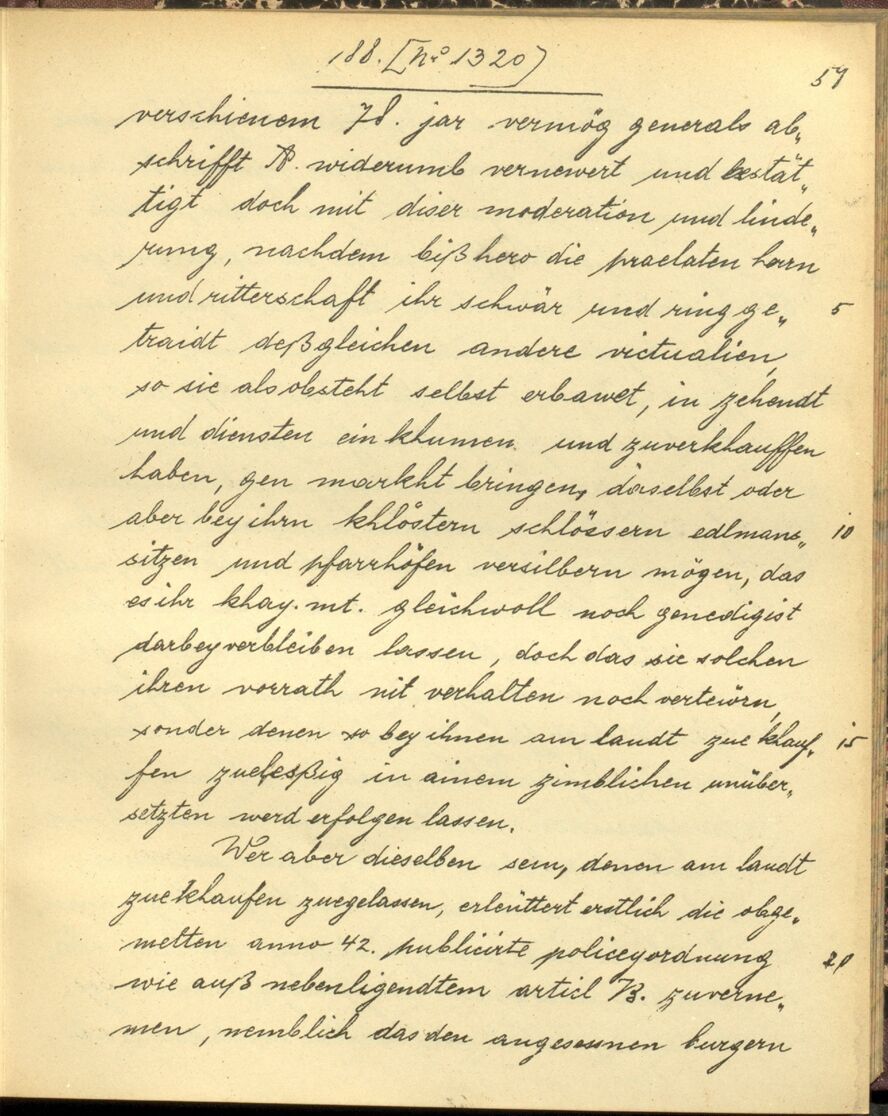 188. [No 1320)
57
verschienem 78. jar vermög generals ab„
schrifft A. widerumb vernewert und bestät„
tigt doch mit diser moderation und linde„
rung, nachdem bißhero die praelaten herrn
und ritterschaft ihr schwär und ring ge„ 5
traidt deßgleichen andere victualien,
so sie alsobsteht selbst erbawet, in zehendt
und diensten einkhumen und zuverkhauffen
haben, gen markht bringen, daselbst oder
aber bey ihrn khlöstern schlössern edlmans„ 10
sitzen und pfarrhöfen versilbern mögen, das
es ihr khay. mt. gleichwoll noch genedigist
darbey verbleiben lassen, doch das sie solchen
ihren vorrath nit verhalten noch vertewrn,
sonder denen so bey ihnen am landt zue khauf„ 15
fen zueleßig in ainem zimblichen unüber„
setzten werd erfolgen lassen.
Wer aber dieselben sein, denen am landt
zue khaufen zuegelassen, erleüttert erstlich die obge„
melten anno 42. publicirte policeyordnung 20
wie auß nebenligendtem articl B. zuverne„
men, nemblich das den angesessnen burgern